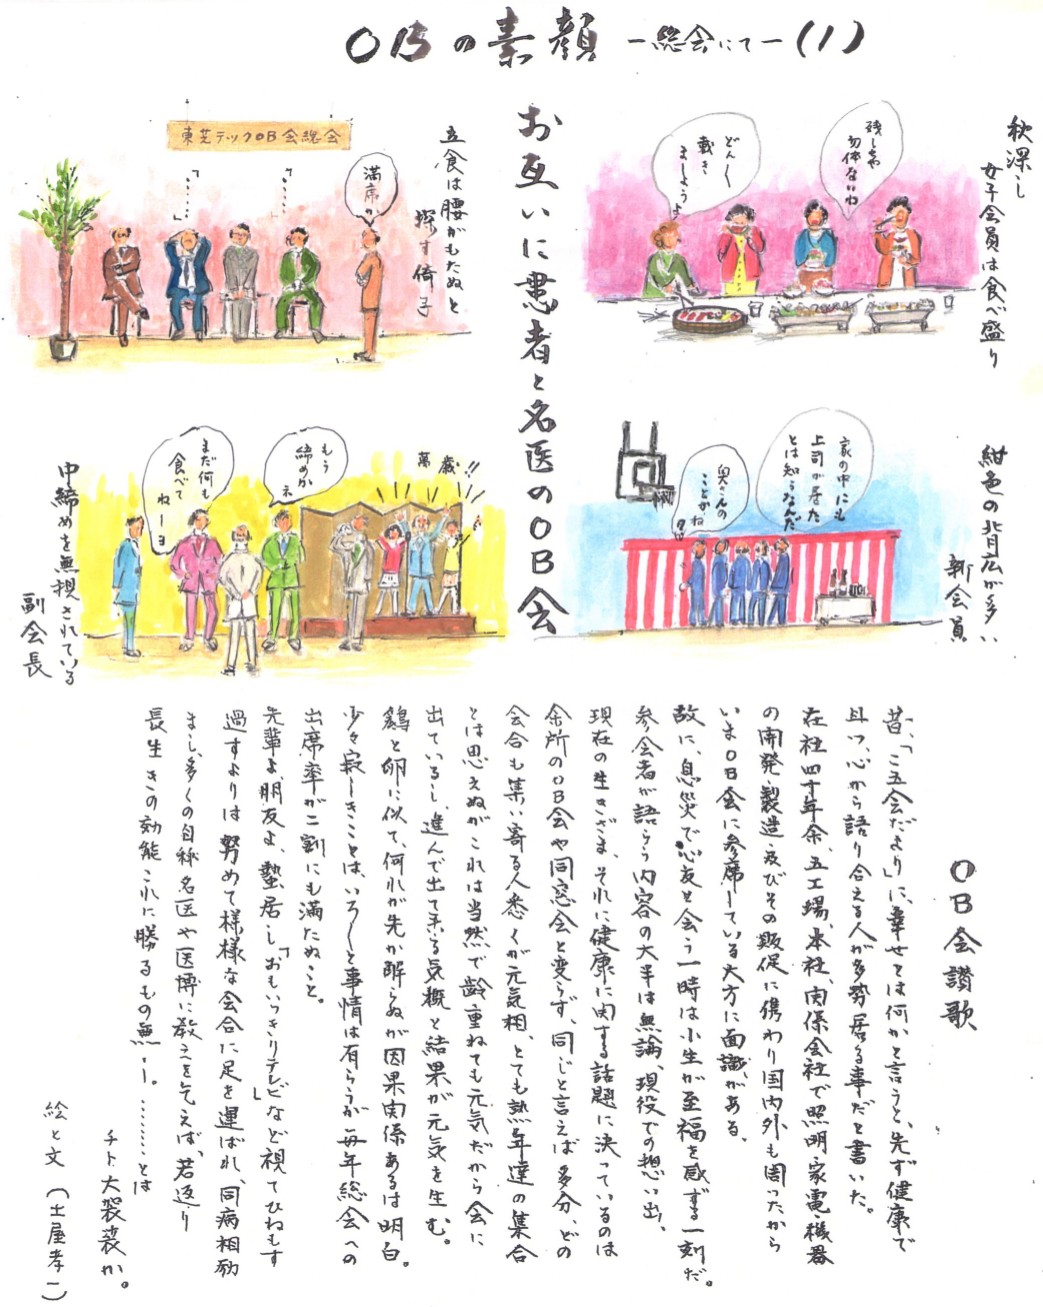 OBの素顔 ー総会にてー (1)
お互いに患者と名医のOB会
秋深し
女子会員は食べ盛り
残しちゃ
勿体ないわ
どん〱
戴き
ましょうよ
立食は腰がもたぬと
探す倚子
東芝テックOB会総会
満席か
「……」
「……」
紺色の背広が多い
新会員
家の中にも
上司が居た
とは知らなんだ
奥さんの
ことかね
中締めを無視されている
副会長
萬歳!!
もう
締めかネ
まだ何も
食べて
ねーヨ
OB会讃歌
昔、「こ五会だより」に、幸せとは何かと言うと、先ず健康で
且つ、心から語り合える人が多勢居る事だと書いた。
在社四十年余、五工場、本社、関係会社で照明、家電、機器
の開発、製造、及びその販促に携わり国内外も周ったから
いまOB会に参席している大方に面識がある。
故に、息災で心友と会う一時は小生が至福を感ずる一刻だ。
参会者が語らう内容の大半は無論、現役での想い出、
現在の生きざま、それに健康に関する話題に決っているのは
余所のOB会や同窓会と変らず、同じと言えば多分、どの
会合も集い寄る人悉くが元気相、とても熟年達の集合
とは思えぬがこれは当然で齢重ねても元気だから会に
出ているし、進んで出て来る気概と結果が元気を生む。
鶏と卵に似て、何れが先か解らぬが因果関係あるは明白。
少々寂しきことは、いろ〱と事情は有ろうが毎年総会への
出席率が二割にも満たぬこと。
先輩よ、朋友よ、蟄居し「おもいっきりテレビ」など視てひねもす
過すよりは努めて様様な会合に足を運ばれ、同病相励
まし、多くの自称名医や医博に教えを乞えば、若返り
長生きの効能これに勝るもの無しー。………とは
チト大袈裟か。
絵と文 (土屋孝一)